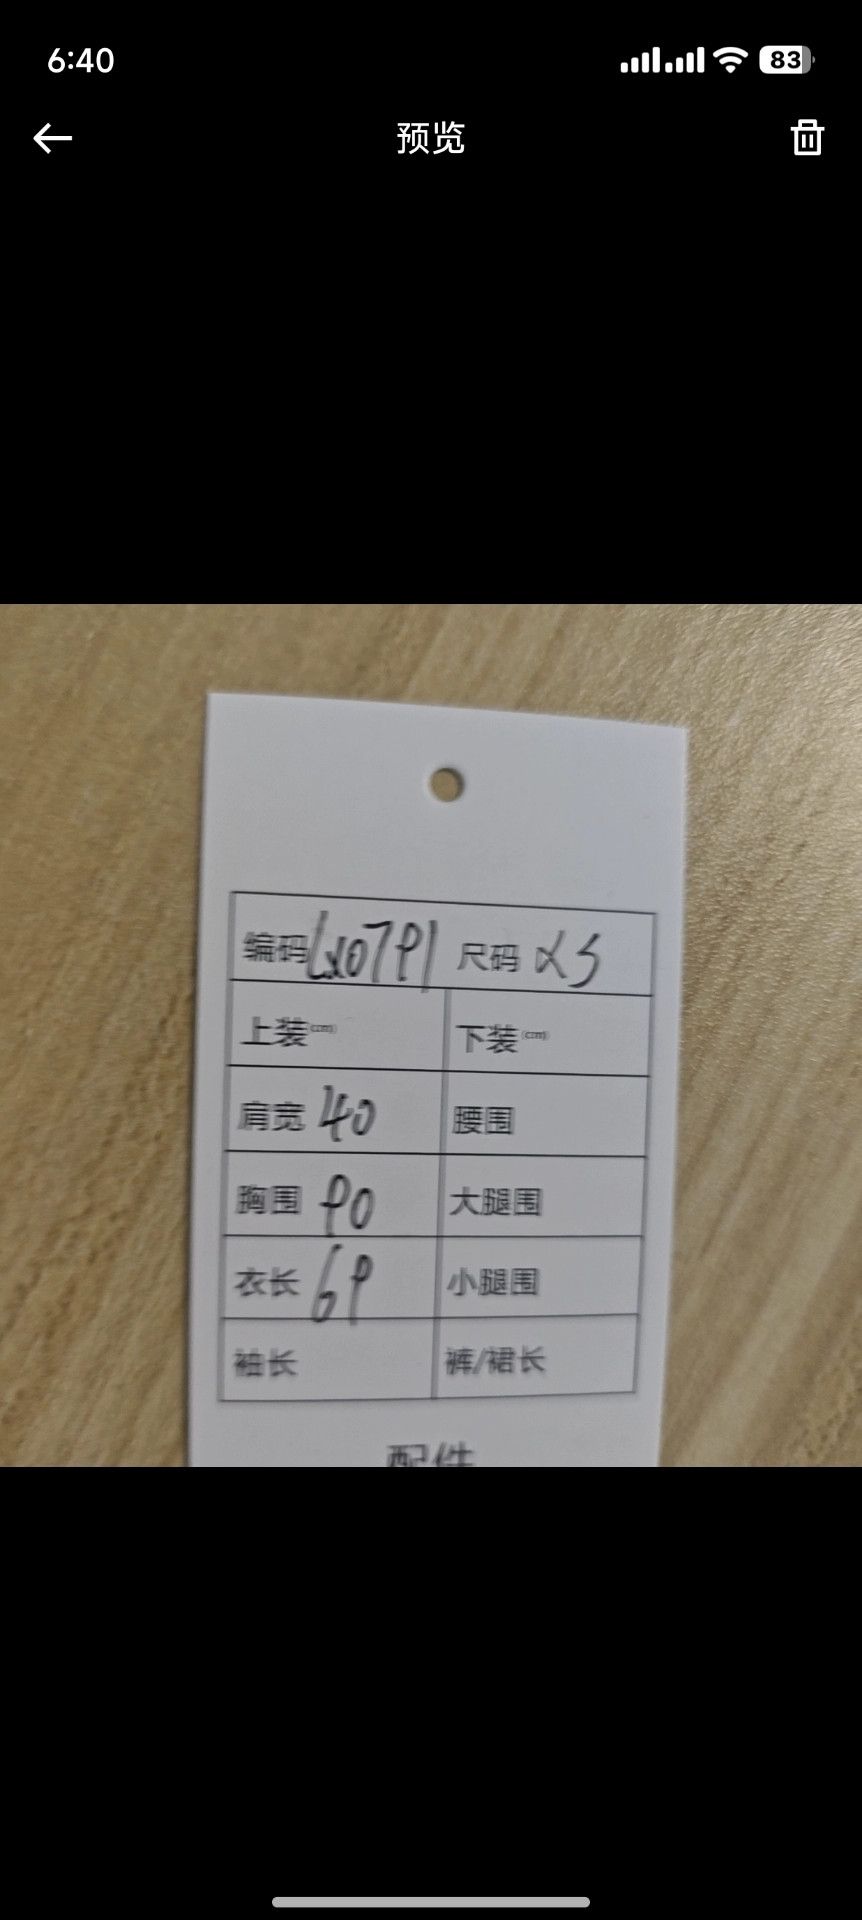 6:40
83
预览
编码 Lx0791 尺码 XS
上装(cm) 下装(cm)
肩宽 40 腰围
胸围 90 大腿围
衣长 69 小腿围
袖长 裤/裙长
配件